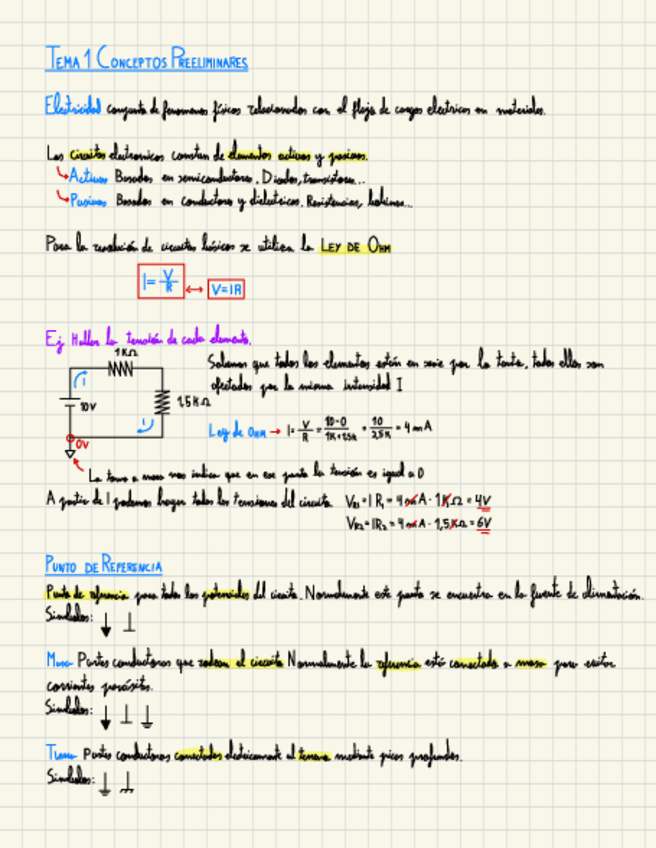 TEMA 1 CONCEPTOS PREELIMINARES
Electricidad conjunto de fenomenos físicos relacionados con el flujo de cargas electricas en materiales.
Los circuitos electronicos constan de elementos activos y pasivos.
Activos Basados en semiconductores. Diodos, transistores...
Pasivos Basados en conductores y dielectricos. Resistencias, bobinas...
Para la resolución de circuitos básicos se utiliza la LEY DE OHM
I = V/R ↔ V=IR
Ej Hallar la tensión de cada elemento.
1KΩ
I
10V
1,5KΩ
I
0V
Sabemos que todos los elementos están en serie por lo tanto, todos ellos son
afectados por la misma intensidad I
Ley de OHM → I = V/R = 10-0/1K+1,5K = 10/2,5K = 4mA
La toma a masa nos indica que en ese punto la tensión es igual a 0
A partir de I podemos hayar todas las tensiones del circuito
VR1 = I R1 = 4mA · 1KΩ = 4V
VR2 = IR2 = 4mA · 1,5KΩ = 6V
PUNTO DE REFERENCIA
Punto de referencia para todos los potenciales del circuito. Normalmente este punto se encuentra en la fuente de alimentación.
Simbolos:
Masa Partes conductoras que rodean el circuito Normalmente la referencia está conectada a masa para evitar
corrientes parásitas.
Simbolos:
Tierra Partes conductoras conectadas electricamente al terreno mediante picas profundas.
Simbolos: